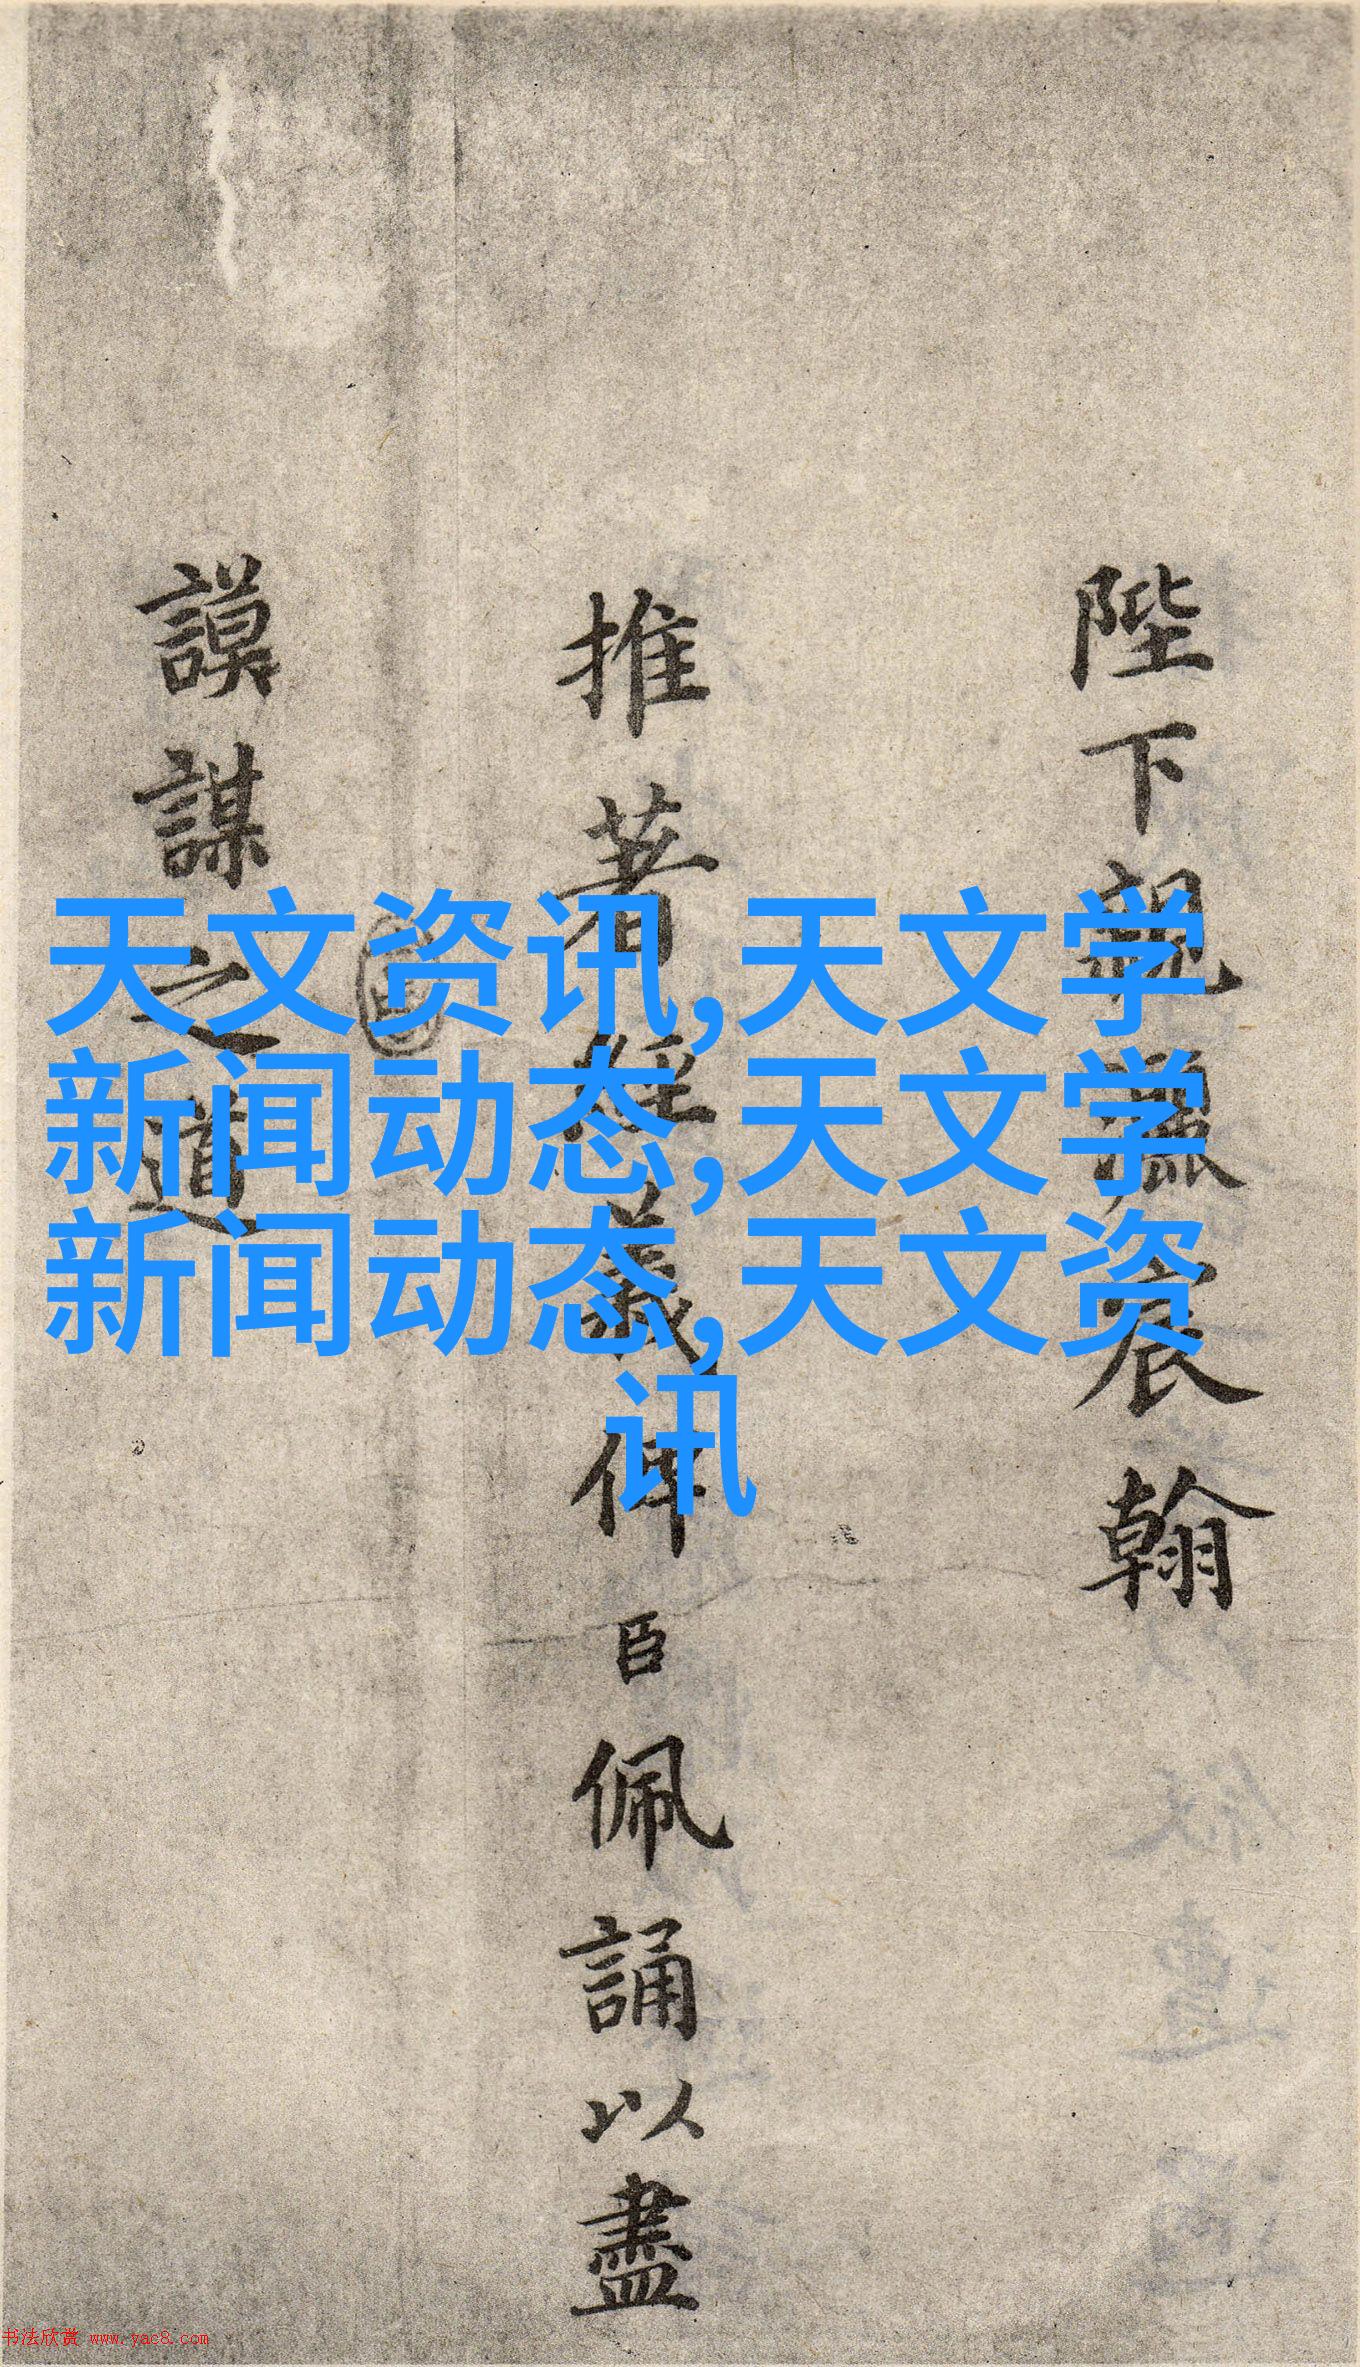 陛下親灑宸翰
推著經義俾臣佩誦以盡
謨謀之道
天文资讯,天文学
新闻动态,天文学
新闻动态,天文资
讯
书法欣赏 www.yac8.com